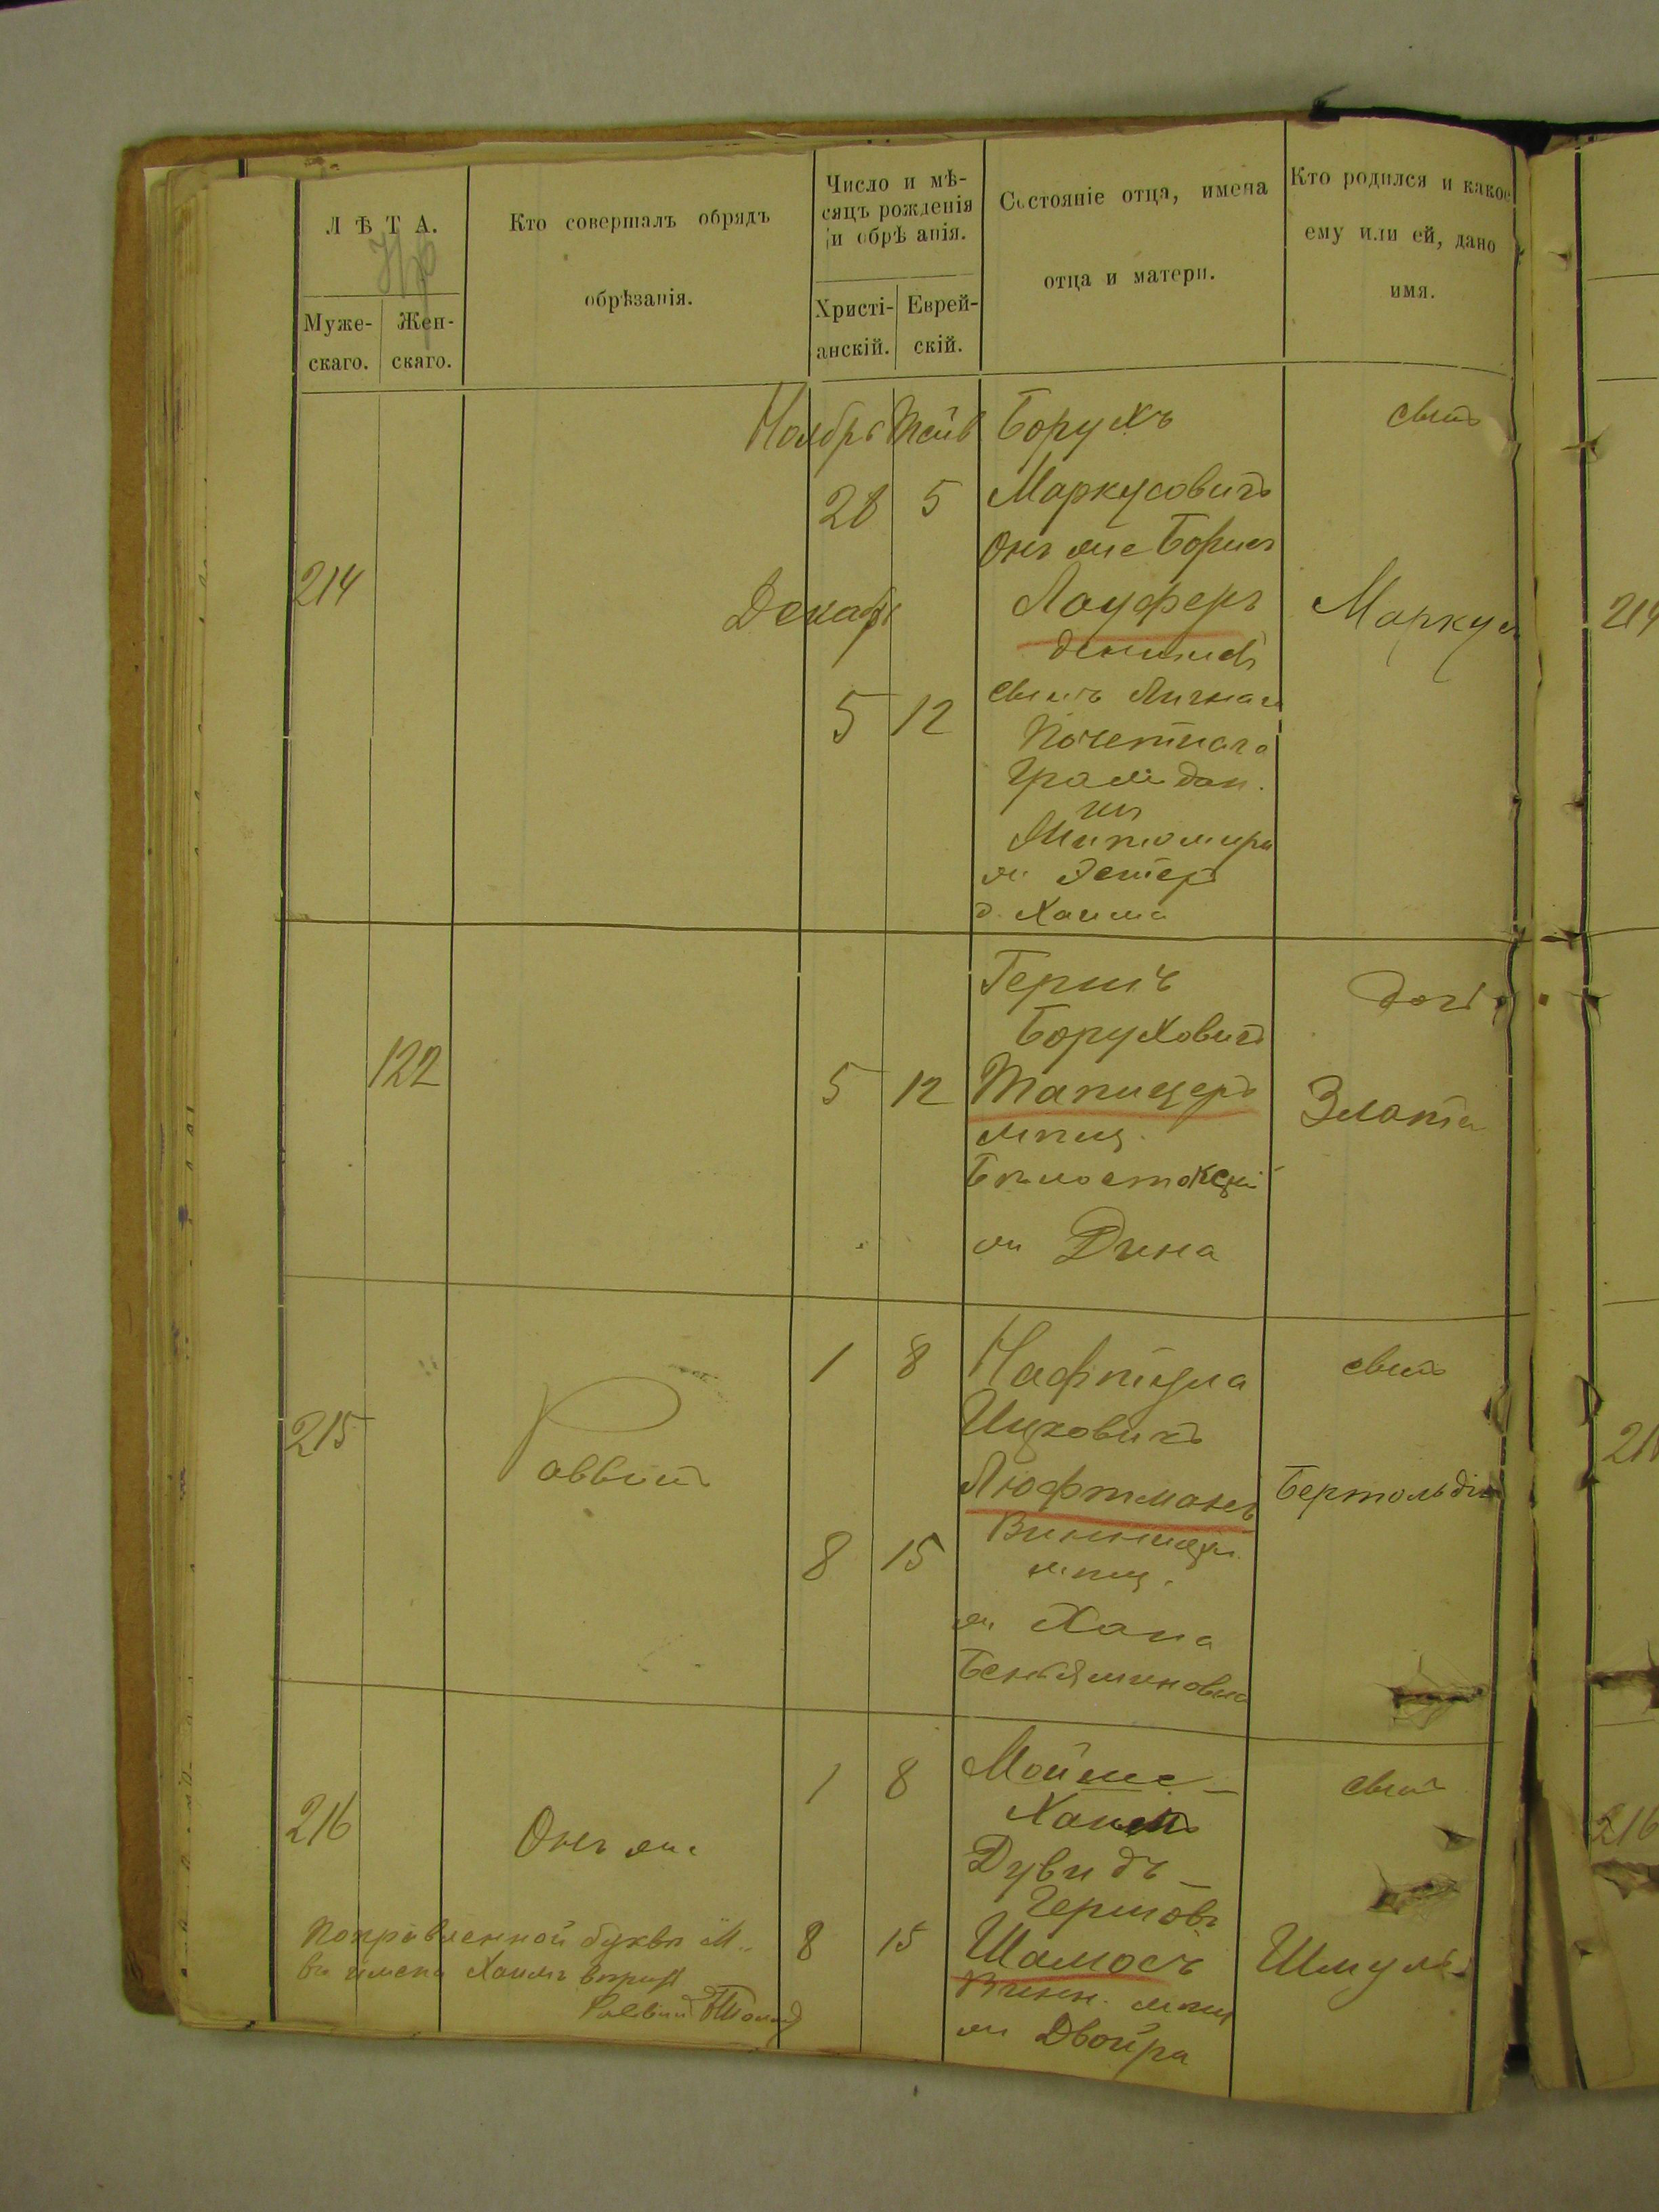 Л Ѣ Т А.
Муже-
скаго.
Жен-
скаго.
Кто совершалъ обрядъ
обрѣзанія.
Число и мѣ-
сяцъ рожденія
и обрѣ анія.
Христі-
анскій.
Еврей-
скій.
Состояніе отца, имена
отца и матери.
Кто родился и какое
ему или ей, дано
имя.
214
Ноябрь
28 5
Декабрь
5 12
Борухъ
Маркусовичъ
Онъ же Борисъ
Лауферъ
дантистъ
сынъ Личнаго
Почетнаго
Граждан.
изъ
Житомира
ж Эстеръ
д. Хаима
сынъ
Маркус
214
122
5 12
Гершъ
Боруховичъ
Тапицеръ
мѣщ.
Бѣлостокскій
ж Дина
дочь
Злата
215
Раввинъ
1 8
8 15
Нафтула
Ицковичъ
Люфтманъ
Винницк.
мѣщ.
ж Хана
Беньяминовна
сынъ
Бертольдъ
21
216
Онъ же
1 8
8 15
Мойше-
Хаимъ
Дувидъ-
Гершовъ
Шамосъ
Винн. мѣщ
ж Двойра
сынъ
Шмуль
216
Поправленной буквѣ М
въ имени Хаимъ вѣрить
Раввинъ